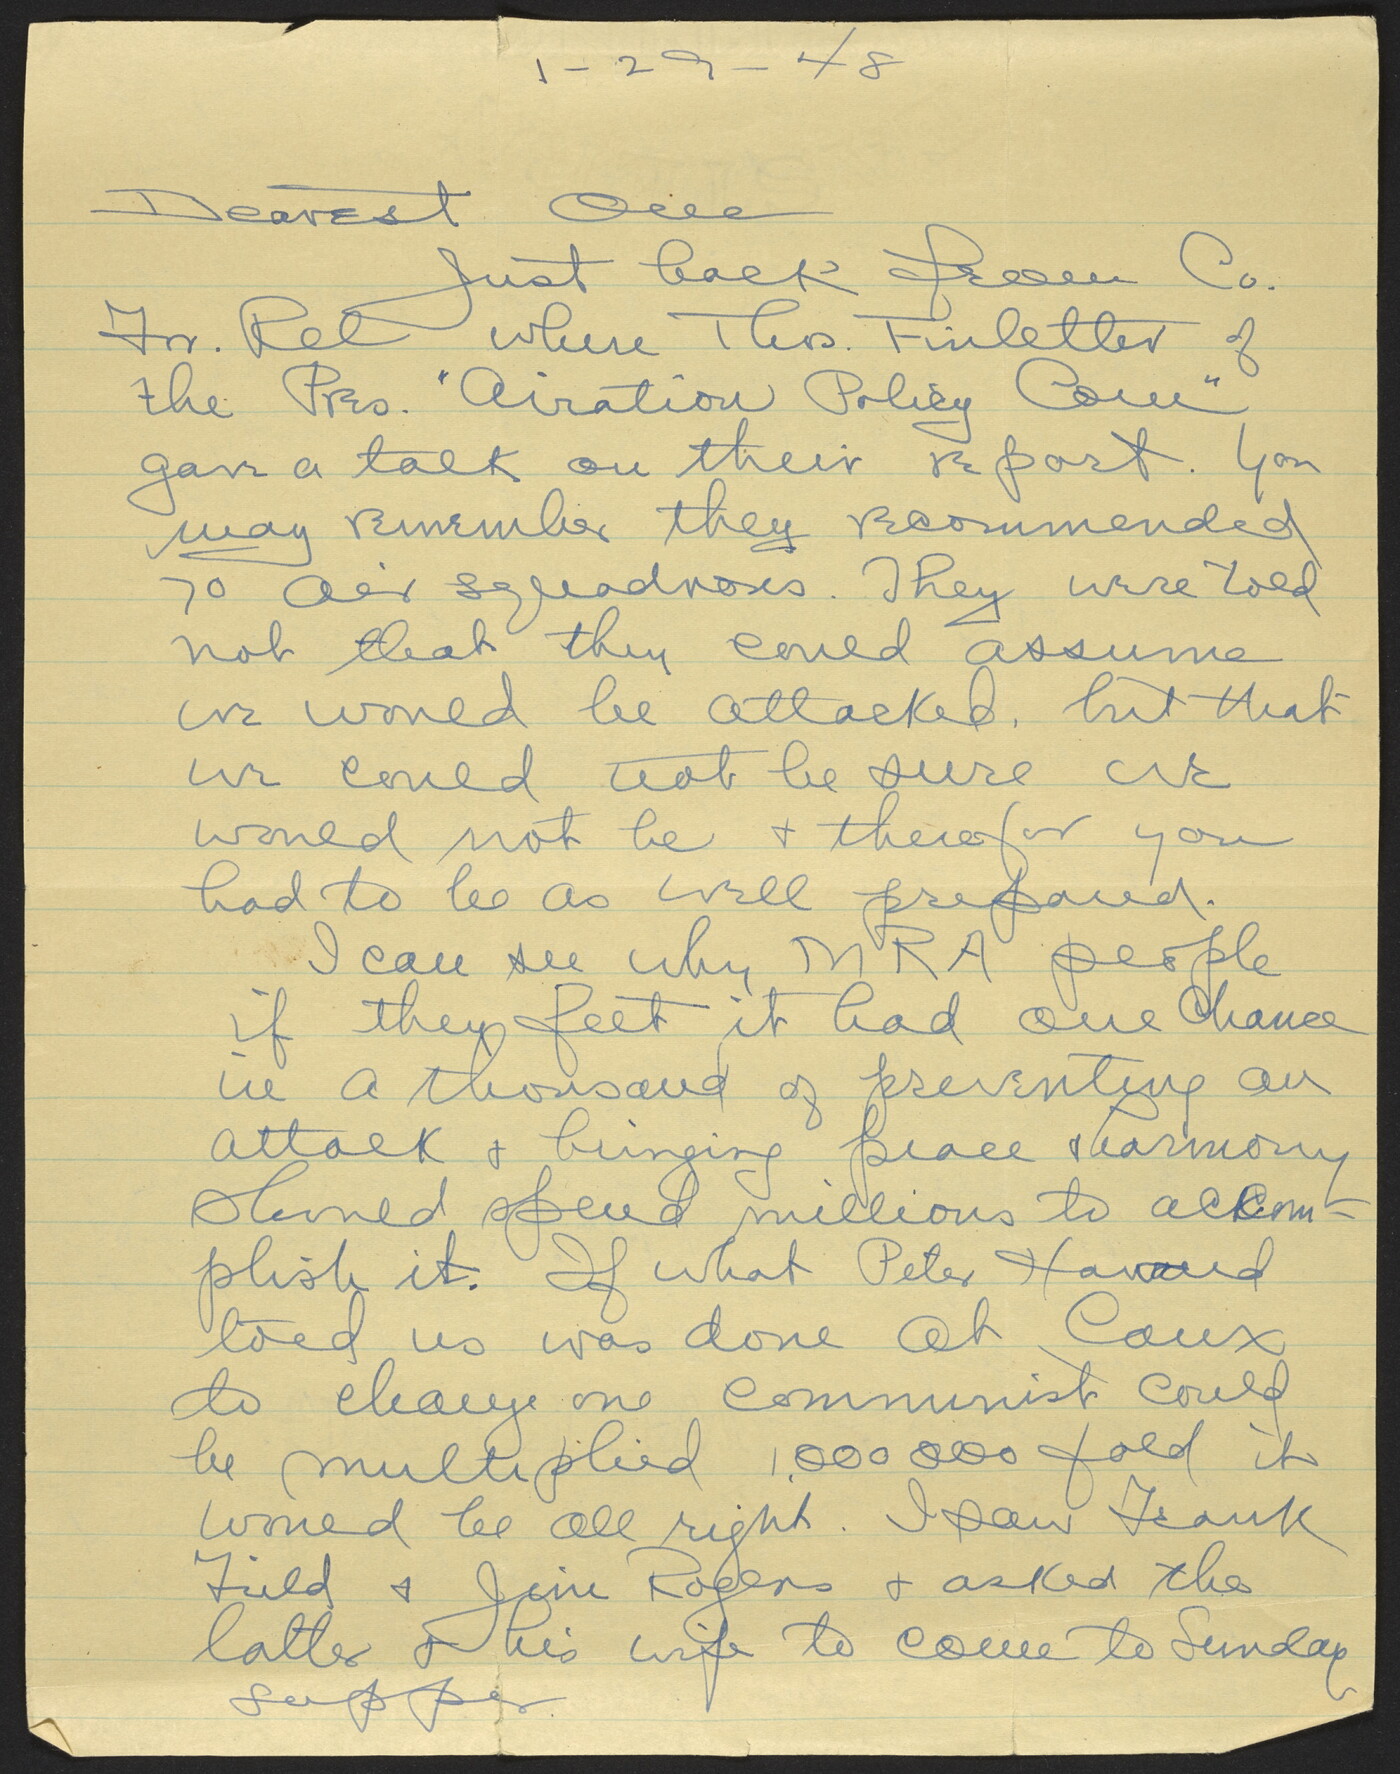 1-29-48
Dearest One
Just back from Co.
For. Rel where Thos. Finletter of
the Pres. "Airation Policy Com"
gave a talk on their report. You
may remember they recommended
70 air squadrons. They were told
not that they could assume
we would be attacked, but that
we could not be sure we
would not be & therefor you
had to be as well prepared.
I can see why MRA people
if they feel it had one chance
in a thousand of preventing an
attack & bringing peace & harmony
should spend millions to accom-
plish it. If what Peter Howard
told us was done at Caux
to change one communist could
be multiplied 1,000000 fold it
would be all right. I saw Frank
Field & Jim Rogers & asked the
latter & his wife to come to Sunday
supper